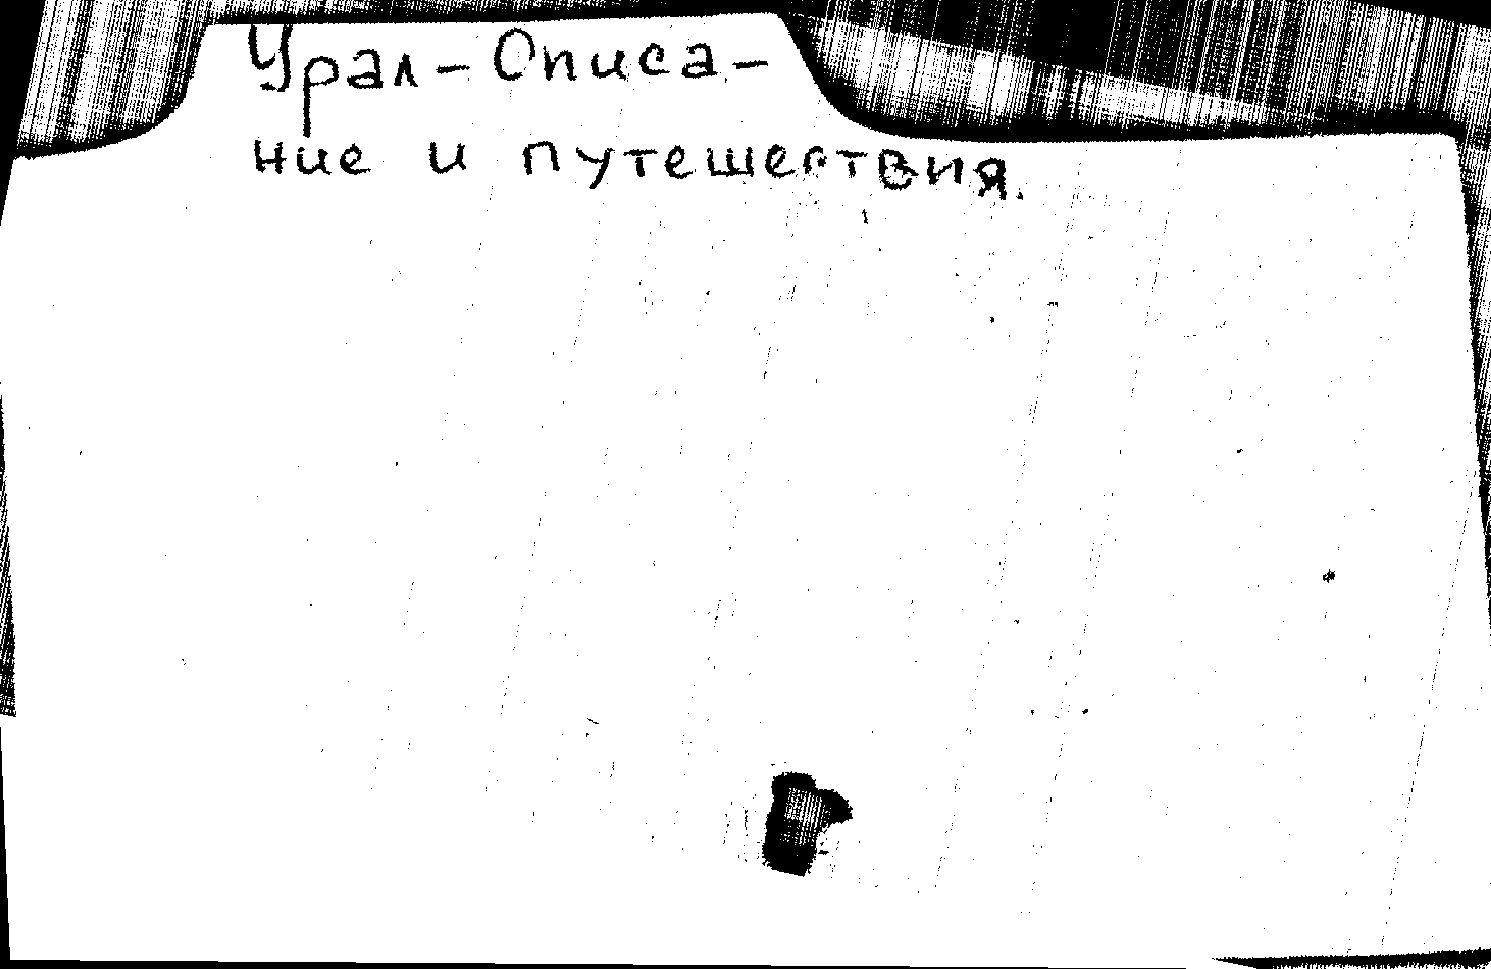 Урал – Описа-
ние и путешествия.